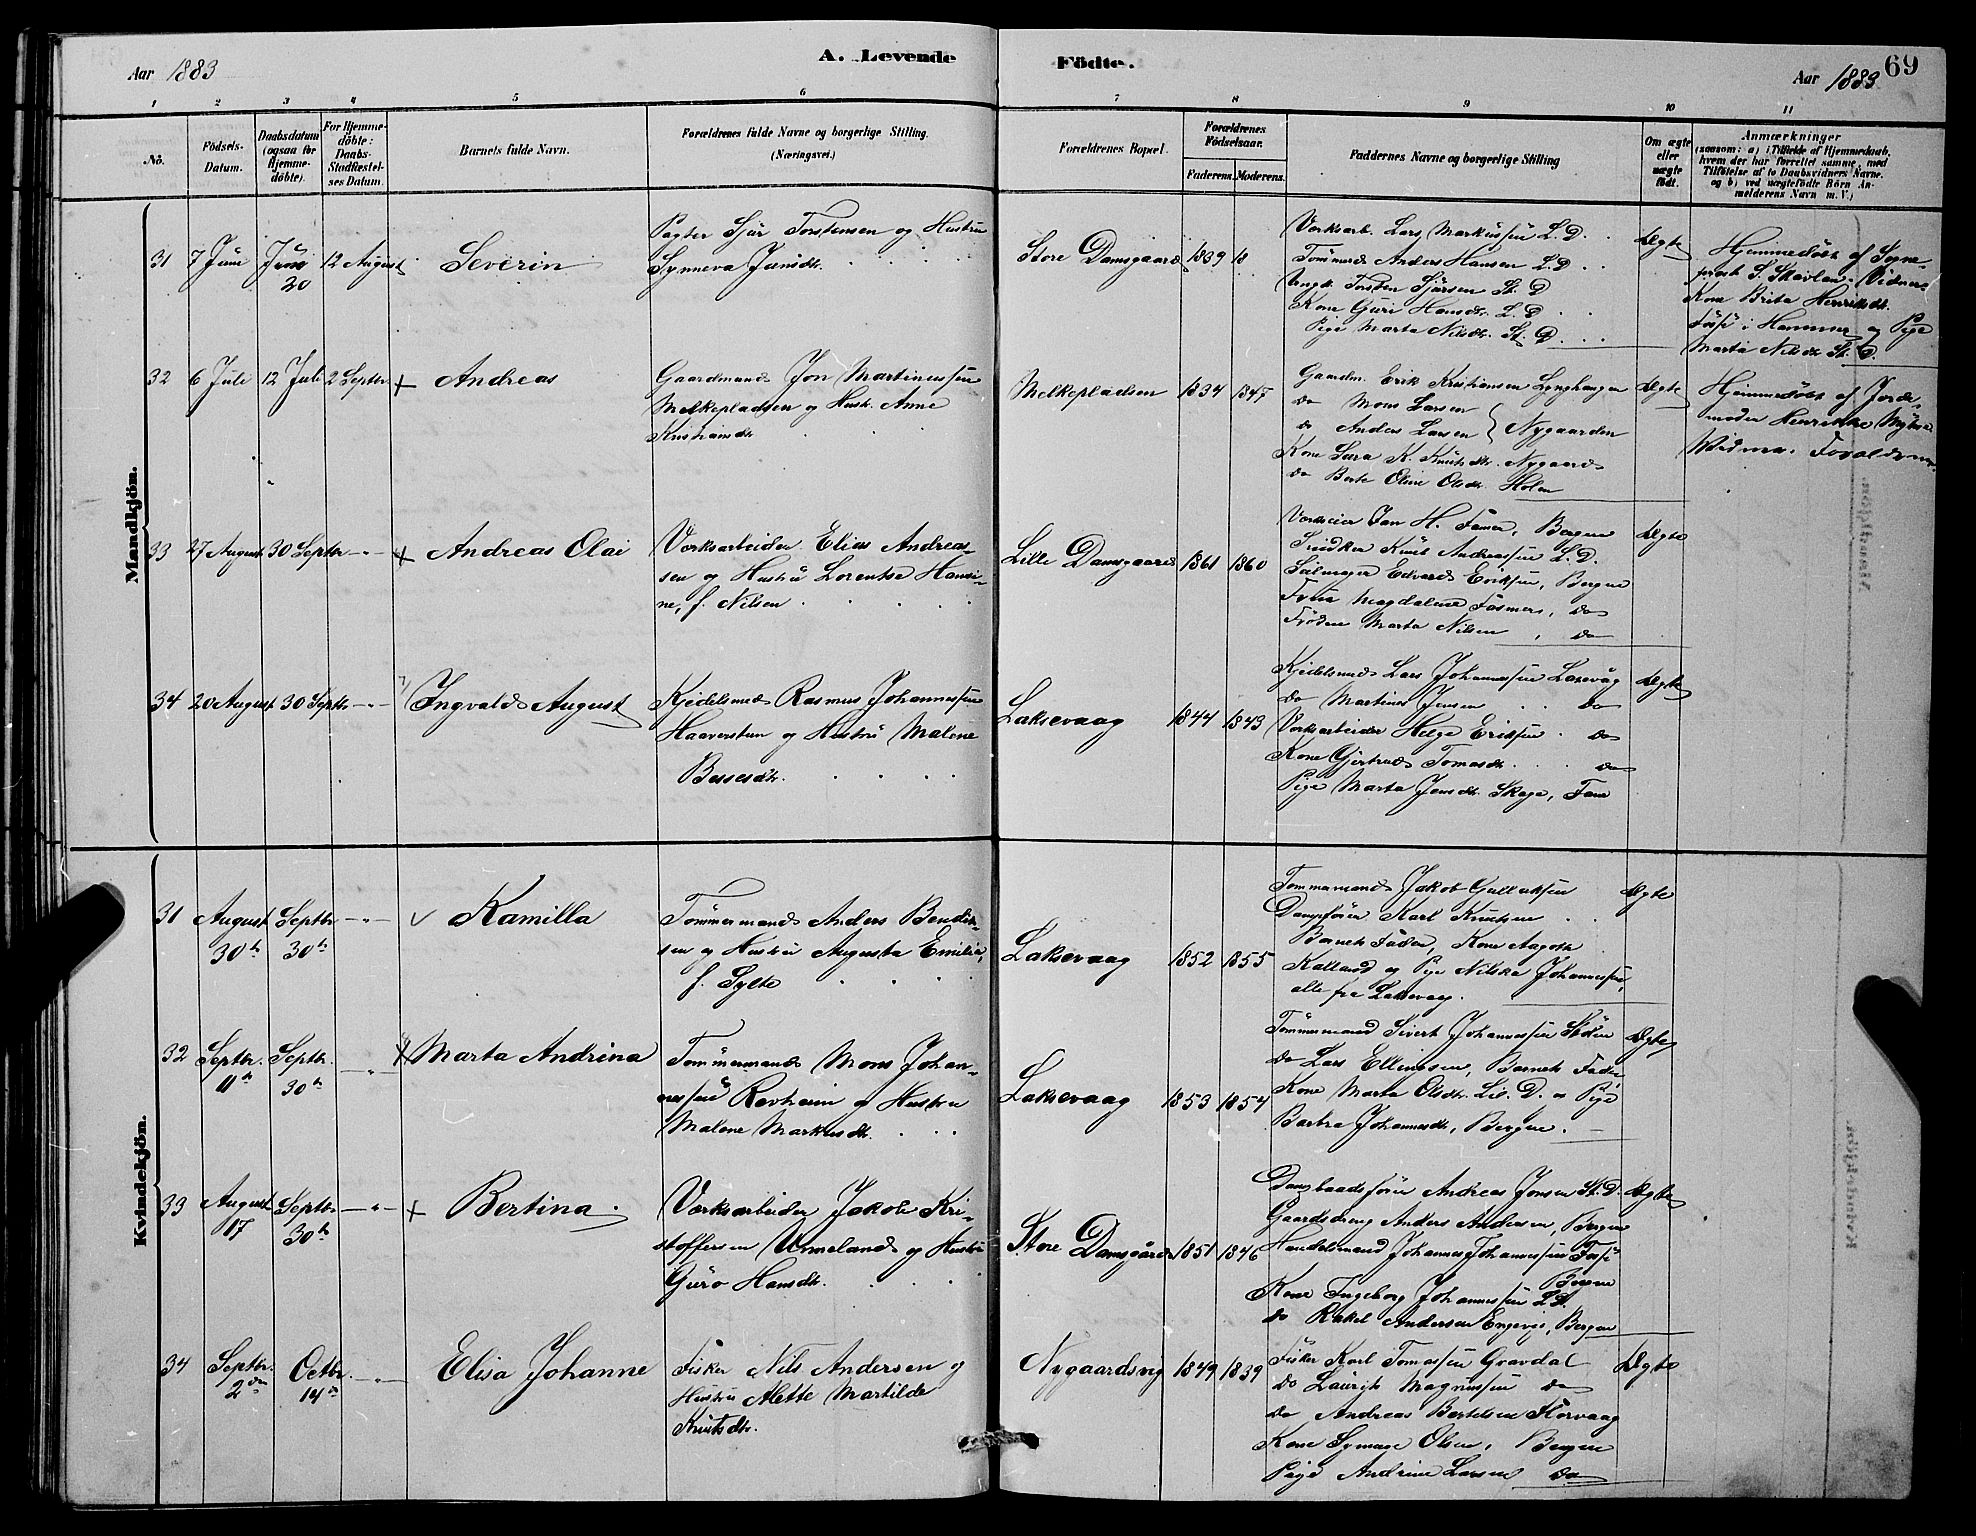 Aar 1883
A. Levende
Födte.
Aar 1883
69
1 2 3 4 5 6 7 8 9 10 11
No.
Födsels-
Datum.
Daabsdatum
(ogsaa for
Hjemme-
döbte).
For Hjemme-
döbte:
Daabs-
Stadfæstel-
ses Datum.
Barnets fulde Navn.
Forældrenes fulde Navne og borgerlige Stilling.
(Næringsvei.)
Forældrenes Bopæl.
Forældrenes
Födselsaar.
Faderens. Moderens.
Faddernes Navne og borgerlige Stilling
Om ægte
eller
uægte
födt.
Anmærkninger
(saasom: a) i Tilfælde af Hjemmedaab,
hvem der har forrettet samme, med
Tilföielse af to Daabsvidners Navne,
og b) ved uægtefödte Börn An-
melderens Navn m. V.)
Mandkjön.
31
7 Juni
Juni
20
12 August
Severin
Pagter Sjur Torstensen og Hustru
Synneva Jensdtr.
Store Damsgaard
1839
Værksarb. Lars Markussen L. D.
Tömmerm Anders Hansen L. D.
Ungk. Torsten Sjursen St. D
Kone Guri Hansdtr. L. D
Pige Marta Nilsdtr. St. D.
Ægte
Hjemmedöbt af Sogne-
prest S. Skavlan. Vidner
Kone Brita Henriksdtr.
Fosse i Hammer og Pige
Marta Nilsdtr St. D.
32
6 Juli
12 Juli
2 Septbr
Andreas
Gaardmand Jon Martinussen
Melkepladsen og Hustr. Anne
Kristiansdtr.
Melkepladsen
1834
1845
Gaardm. Erik Kristiansen Lynghaugen
do Mons Larsen
do Anders Larsen } Nygaarden
Kone Sara K. Knutsdtr. Nygaard
do Berte Oline Olsdtr. Holen
Ægte
Hjemmedöbt af Jorde-
moder Henrikke
Vidner. Forældrene.
33
27 August
30 Septbr
- " -
Andreas Olai
Værksarbeider Elias Andreas-
sen og Hustru Lorentse Hansi-
ne, f. Nilsen
Lille Damsgaard
1861
1860
Værkseier Jan H. Fasmer, Bergen
Snedker Knut Andreassen L. D.
Seilmager Edvard Eriksen, Bergen
Frue Magdalene Fasmer, do
Fröken Marta Nilsen, do
Ægte
34
20 August
30 Septbr
- " -
Ingvald August
Kjedelsmed Rasmus Johannessen
Haaverstun og Hustru Malene
Bessesdtr.
Laksevaag
1844
1843
Kjedelsmed Lars Johannessen Laxevåg
do Martines Jensen do
Værksarbeider Helge Eriksen do
Kone Gjertrud Tomasdtr. do
Pige Marta Jonsdtr. Skage, Fane
Ægte
Kvindekjön.
31
August
30te
Septbr
30te
- " -
Kamilla
Tömmermand Anders Bendik-
sen og Hustru Augusta Emilie,
f. Sylte
Laksevaag
1852
1855
Tommermand Jakob Gullaksen
Dampförer Karl Knutsen
Barnets Fader, Kone Aagoth
Kalland og Pige Nilska Johannessen,
alle fra Laksevaag.
Ægte
32
Septbr.
11te
Septbr.
30te
- " -
Marta Andrina
Tommermand Mons Johan-
nessen Ravheim og Hustru
Malene Markusdtr.
Laksevaag
1853
1854
Tömmermand Sivert Johannessen Stöen
do Lars Ellingsen, Barnets Fader
Kone Marta Olsdtr. Lil. D. og Pige
Barbra Johannesdtr, Bergen.
Ægte
33
August
17
Septbr
30te
- " -
Bertina
Værksarbeider Jakob Kri-
stoffersen Unneland og Hustru
Guro Hansdtr.
Store Damsgaard
1851
1846
Dampbaadsförer Andreas Jonsen St. D.
Gaardsdreng Anders Andersen, Bergen
Handelsmand Johannes Johannessen Fosse
Bergen
Kone Ingeborg Johannessen L D.
do Rakel Andersen Engevig, Bergen
Ægte
34
Septbr.
2den
Octbr.
14de
- " -
Elisa Johanne
Fisker Nils Andersen og
Hustru Alette Martilde
Knutsdtr.
Nygaardsvig
1849
1839
Fisker Karl Tomassen Gravdal
do Laurits Magnussen do
do Andreas Bertelsen Storvaag
Kone Synnove Olsen, Bergen
Pige Andrine Larsen do
Ægte